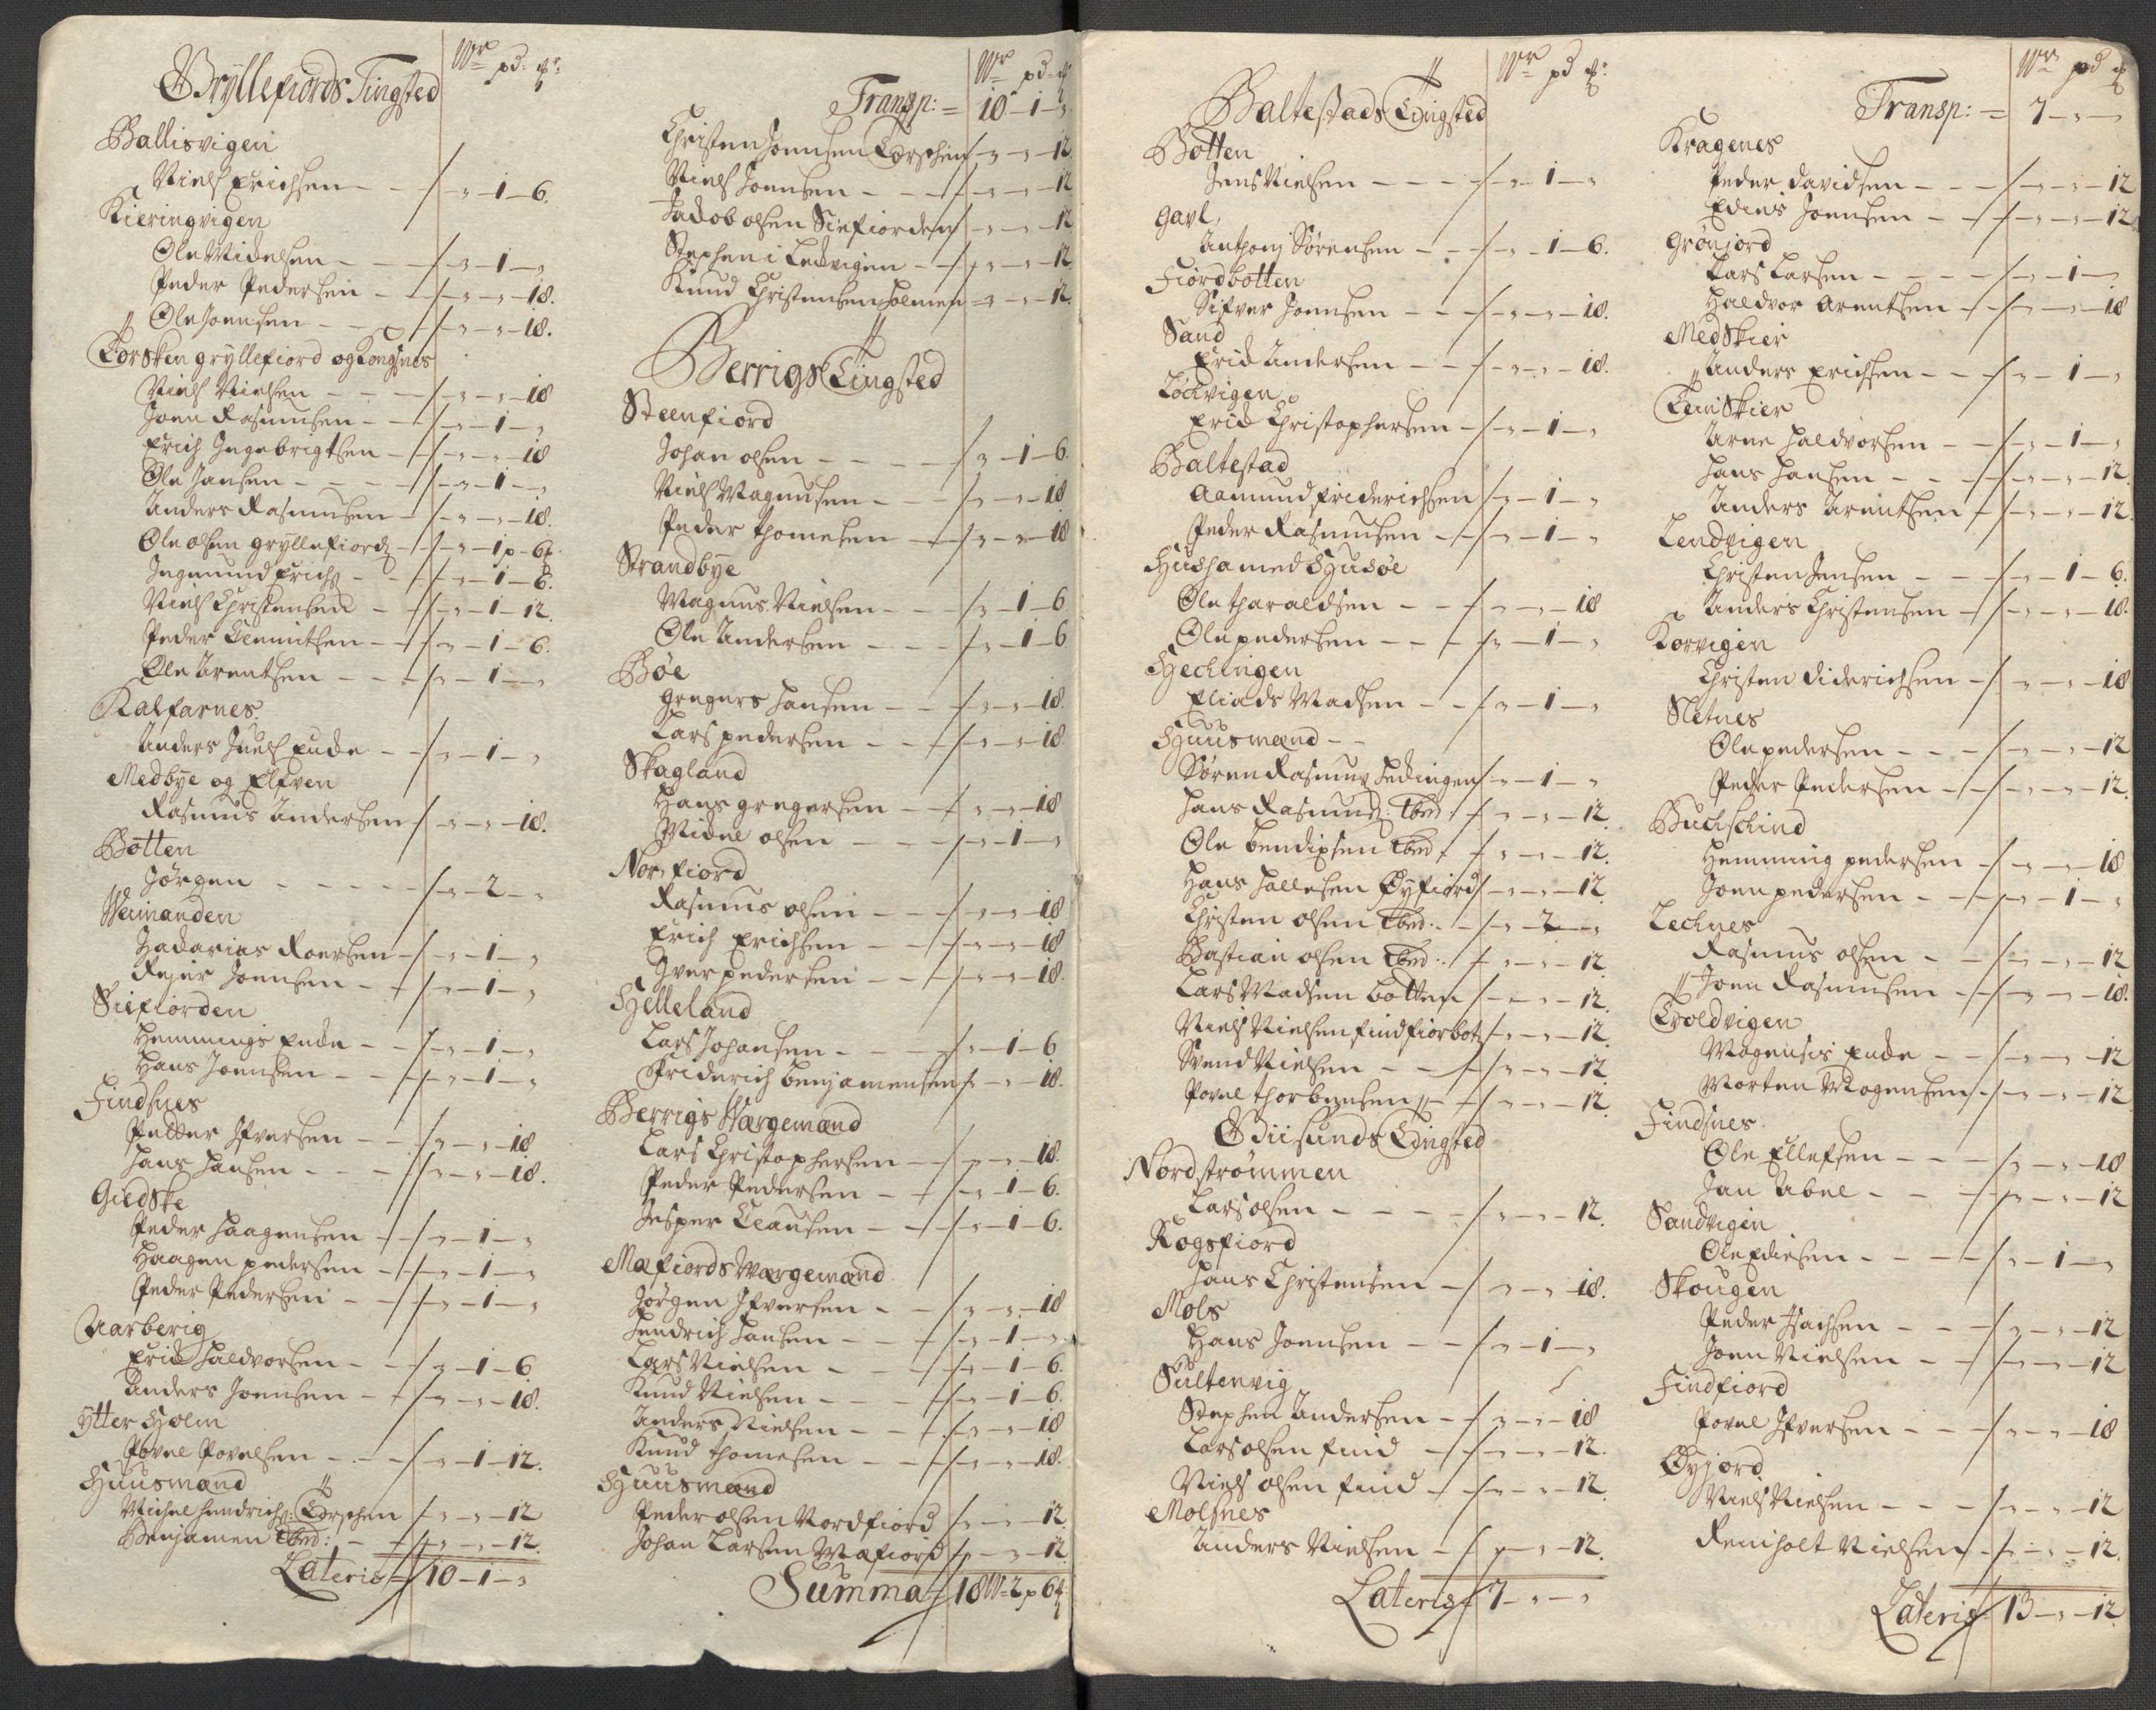 Gryllefiords Tingsted Wr pd ℔
Ballisvigen
Niels Erichsen - - " - 1 - 6.
Kieringvigen
Ole Michelsen - - " - 1 - "
Peder Pedersen - - " - " - 18.
Ole Joensen - - " - " - 18.
Torsken gryllefiord og Kongsnes
Niels Nielsen - - " - " - 18
Joen Rasmusen - - " - 1 - "
Erich Ingebrigtsen - " - " - 18
Ole Jansen - - " - 1 - "
Anders Rasmusen - " - " - 18.
Ole olsen gryllefiord - " - 1p - 6℔.
Ingmund Erichs - " - 1 - 6.
Niels Christensen - " - 1 - 12.
Peder Clemitsen - " - 1 - 6.
Ole Arentsen - - " - 1 - "
Kalfarnes.
Anders Juels Enche - - " - 1 - "
Medbye og Elfven
Rasmus Andersen " - " - 18.
Botten
Jørgen - - - " - 2 - "
Weimanden
Zacharias Roersen - " - 1 - "
Rejer Joensen - - " - 1 - "
Siefiorden
Hemmings Enche - - " - 1 - "
Hans Joensen - - " - 1 - "
Findsnes
Petter Ifversen - - " - " - 18.
Hans Hansen - - " - " - 18.
Giedske
Peder Haagensen - " - 1 - "
Haagen pedersen - " - 1 - "
Peder Pedersen - - " - 1 - "
Aarberig
Erich Haldvorsen - - " - 1 - 6
Anders Joensen - - " - " - 18.
Ytter Holm
Povel Povelsen - - " - 1 - 12.
Huusmænd
Michel Hendrichs: Torschen " - " - 12
Benjamen ibid: - " - " - 12.
Lateris = 10 - 1 - "
Wr pd ℔
Transp: = 10 - 1 - "
Christen Joensen Torschen - " - " - 12.
Niels Joensen - - - " - " - 12
Jacob olsen Siefiorden " - " - 12
Stephen i Lechvigen - - " - " - 12.
Knud Christensen Holmen - " - " - 12.
Berrigs Tingsted
Steenfiord
Johan olsen - - - " - 1 - 6.
Niels Magnusen - - " - " - 18
Peder Thomesen - " - " - 18
Strandbye
Magnus Nielsen - - " - 1 - 6
Ole Andersen - - - " - 1 - 6
Bøe
Gregers Hansen - - " - " - 18.
Lars pedersen - - " - " - 18.
Skagland
Hans gregersen - - " - " - 18
Michel olsen - - - " - 1 - "
Norfiord
Rasmus olsen - - - " - " - 18
Erich Erichsen - - " - " - 18
Iver pedersen - - " - " - 18.
Helleland
Lars Johansen - - - " - 1 - 6
Friderich benjamensen " - " - 18.
Berrigs Wærgemænd
Lars Christophersen - " - " - 18.
Peder Pedersen - - " - 1 - 6.
Jesper Clausen - - " - 1 - 6.
Mæfiords Wærgemænd
Jørgen Ifversen - - " - " - 18
Hendrich Hansen - - " - 1 - "
Lars Nielsen - - - " - 1 - 6.
Knud Nielsen - - - " - 1 - 6.
Anders Nielsen - - " - " - 18
Knud Thomesen - - " - " - 18.
Huusmænd
Peder olsen Nordfiord " - " - 12.
Johan Larsen Mæfiord " - " - 12.
Summa = 18 W - 2 p 6℔
Baltestads Tingsted Wr pd ℔
Botten
Jens Nielsen - - - " - 1 - "
Gavl
Anthonj Sørensen - - " - 1 - 6.
Fiordbotten
Sifver Joensen - - " - " - 18.
Sand
Erich Andersen - - " - " - 18.
Løchvigen
Erich Christophersen - " - 1 - "
Baltestad
Aamund friderichsen " - 1 - "
Peder Rasmusen - " - 1 - "
Husha med Husøe
Ole Tharaldsen - - " - " - 18
Ole pedersen - - - " - 1 - "
Hechingen
Eliads Madsen - - " - 1 - "
Huusmænd - -
Søren Rasmus Hechingen " - 1 - "
Hans Rasmusz: ibid: " - " - 12.
Ole bendixsen ibid: " - " - 12.
Hans Hallesen Øyfiord " - " - 12
Christen olsen ibid: - " - 2 - "
Bastian olsen ibid: " - " - 12
Lars Madsen botten " - " - 12.
Niels Nielsen findfiorbot " - " - 12.
Svend Nielsen - - " - " - 12
Povel thorbensen - " - " - 12.
Giisunds Tingsted
Nordstrømmen
Lars olsen - - - " - " - 12.
Rogsfiord
Hans Christensen - " - " - 18.
Mols
Hans Joensen - - " - 1 - "
Sultenvig
Stephen Andersen - " - " - 18
Lars olsen find - " - " - 12.
Niels olsen find - " - " - 12.
Molsnes
Anders Nielsen - " - " - 12.
Lateris = 7 - " - "
Wr pd ℔
Transp: = 7 - " - "
Kragenes
Peder davidsen - - " - " - 12
Edias Joensen - - " - " - 12
Grønjord
Lars Larsen - - - " - 1 - "
Haldvor Arentsen - " - " - 18
Medskier
Anders Erichsen - - " - 1 - "
Tenskier
Arne Haldvorsen - - " - 1 - "
Hans Hansen - - " - " - 12.
Anders Arentsen - " - " - 12.
Lendvigen
Christen Jensen - - " - 1 - 6.
Anders Christensen - " - " - 18.
Korvigen
Christen diderichsen - " - " - 18
Sletnes
Ole pedersen - - - " - " - 12
Peder Pedersen - - " - " - 12.
Buchschind
Hemming pedersen - " - " - 18
Joen pedersen - - - " - 1 - "
Lechnes
Rasmus olsen - - " - " - 12
Joen Rasmusen - - " - " - 18.
Troldvigen
Mogensis Enche - - " - " - 12
Morten Mogensen - " - " - 12
Findsnes.
Ole Ellefsen - - - " - " - 18
Jan Abel - - - " - " - 12
Sandvigen
Ole Ediesen - - - " - 1 - "
Skougen
Peder Isachsen - - " - " - 12
Joen Nielsen - - " - " - 12
Findfiord
Povel Ifversen - - " - " - 18
Øyjord
Niels Nielsen - - - " - " - 12
Reinholt Nielsen - " - " - 12.
Lateris = 13 - " - 12